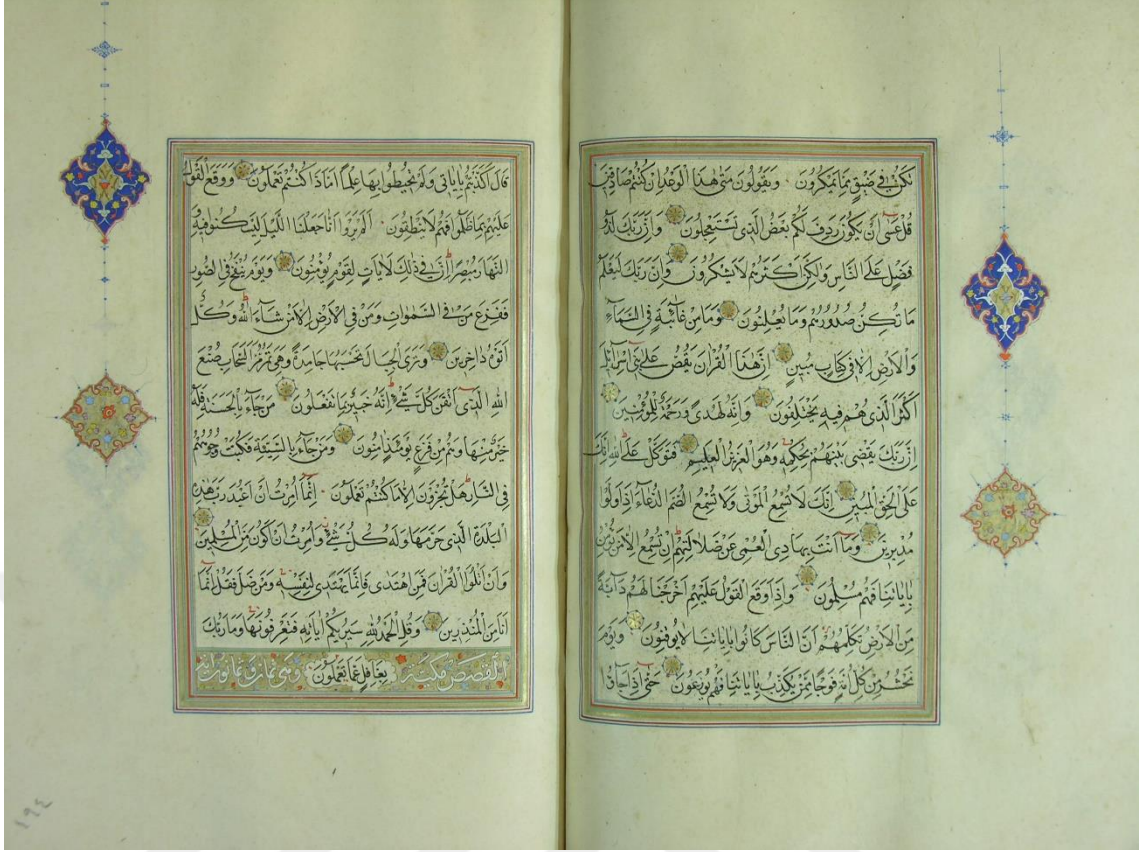 تكن في ضيق مما يمكرون ويقولون متى هذا الوعد ان كنتم صادقين
قل عسى ان يكون ردف لكم بعض الذي تستعجلون وان ربك لذو
فضل على الناس ولكن اكثرهم لا يشكرون وان ربك ليعلم
ما تكن صدورهم وما يعلنون وما من غائبة في السماء
والارض الا في كتاب مبين ان هذا القران يقص على بني اسرائيل
اكثر الذي هم فيه يختلفون وانه لهدى ورحمة للمؤمنين
ان ربك يقضي بينهم بحكمه وهو العزيز العليم فتوكل على الله انك
على الحق المبين انك لا تسمع الموتى ولا تسمع الصم الدعاء اذا ولوا
مدبرين وما انت بهادي العمي عن ضلالتهم ان تسمع الا من يؤمن
باياتنا فهم مسلمون واذا وقع القول عليهم اخرجنا لهم دابة
من الارض تكلمهم ان الناس كانوا باياتنا لا يوقنون ويوم
نحشر من كل امة فوجا ممن يكذب باياتنا فهم يوزعون حتى اذا جاؤا
قال اكذبتم باياتي ولم تحيطوا بها علما اماذا كنتم تعملون ووقع القول
عليهم بما ظلموا فهم لا ينطقون الم يروا انا جعلنا الليل ليسكنوا فيه و
النهار مبصرا ان في ذلك لايات لقوم يؤمنون ويوم ينفخ في الصور
ففزع من في السموات ومن في الارض الا من شاء الله وكل
اتوه داخرين وترى الجبال تحسبها جامدة وهي تمر مر السحاب صنع
الله الذي اتقن كل شيء انه خبير بما تفعلون من جاء بالحسنة فله
خير منها وهم من فزع يومئذ امنون ومن جاء بالسيئة فكبت وجوههم
في النار هل تجزون الا ما كنتم تعملون انما امرت ان اعبد رب هذه
البلدة الذي حرمها وله كل شيء وامرت ان اكون من المسلمين
وان اتلوا القران فمن اهتدى فانما يهتدي لنفسه ومن ضل فقل انما
انا من المنذرين وقل الحمد لله سيريكم اياته فتعرفونها وما ربك
القصص مكية بغافل عما تعملون وهي ثمان وثمانون اية
١٩٤